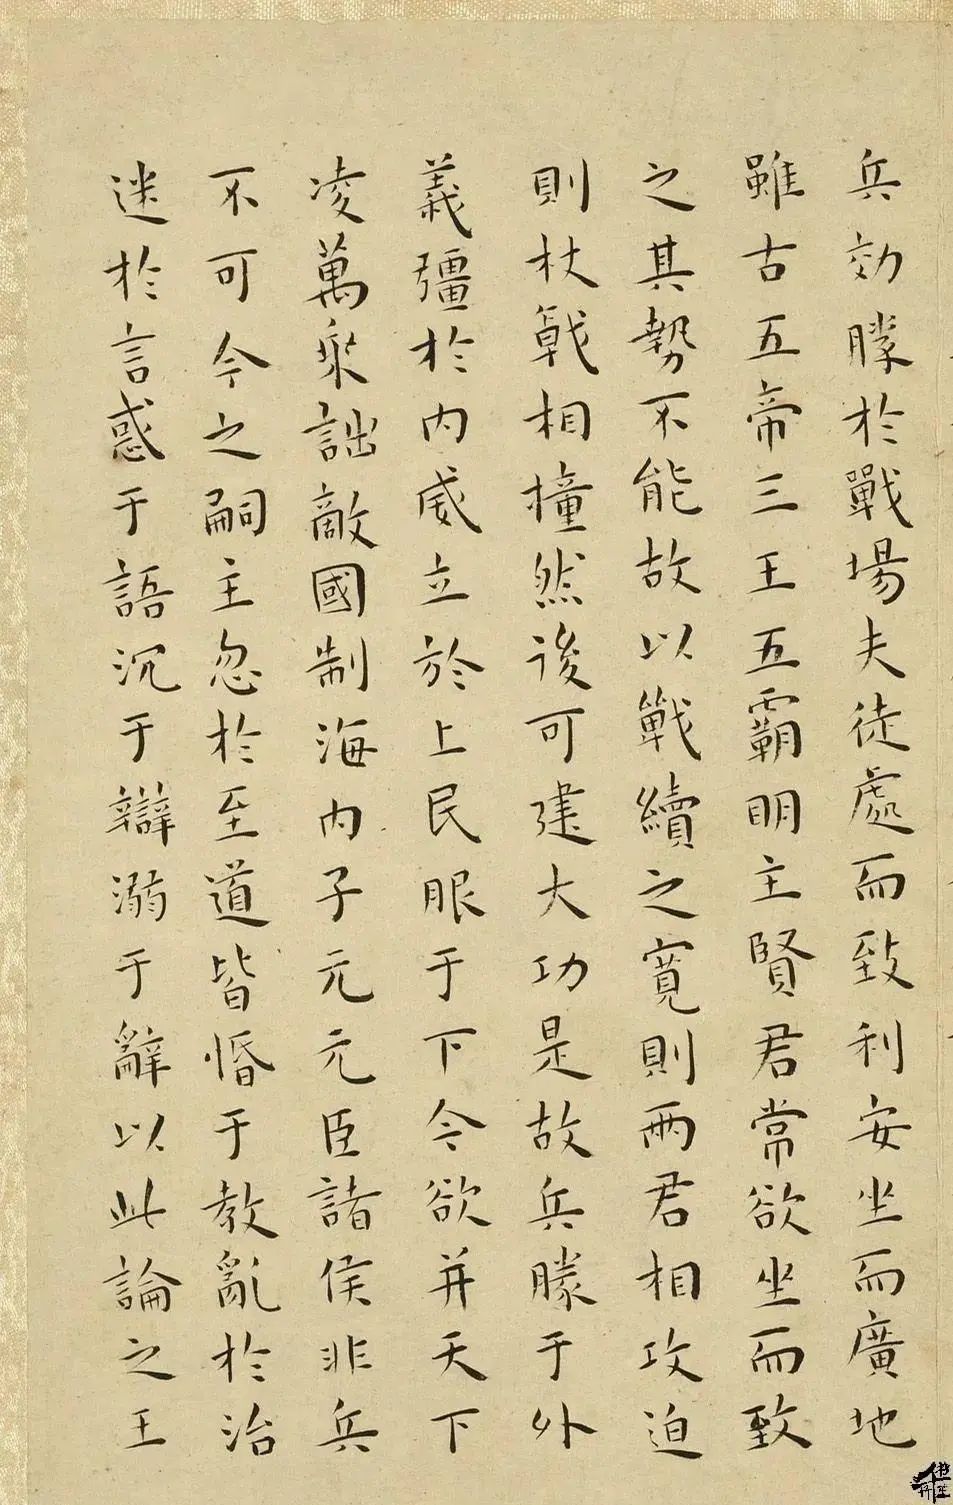 兵効勝於戰場夫徒處而致利安坐而廣地
雖古五帝三王五霸明主賢君常欲坐而致
之其勢不能故以戰續之寬則兩君相攻迫
則杖戟相撞然後可建大功是故兵勝于外
義彊於內威立於上民服于下今欲并天下
凌萬衆詘敵國制海內子元元臣諸侯非兵
不可今之嗣主忽於至道皆惛于教亂於治
迷於言惑于語沉于辯溺于辭以此論之王